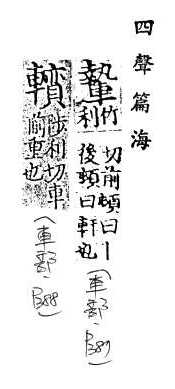 四聲篇海
竹利切前頓曰丨
後頓曰軒也
(車部、
陟利切車
前重也
(車部、